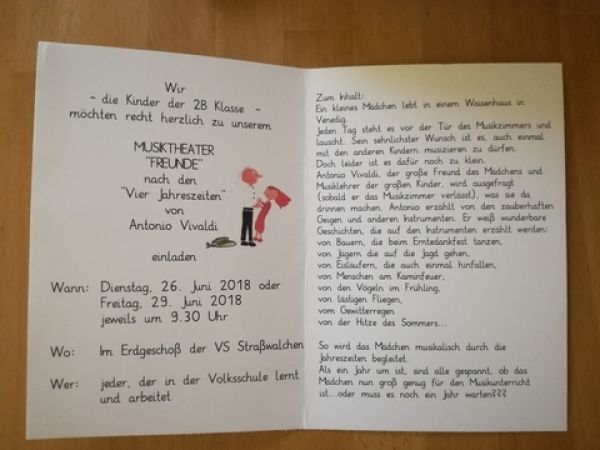 Wir
- die Kinder der 2B Klasse -
möchten recht herzlich zu unserem
MUSIKTHEATER
"FREUNDE"
nach den
"Vier Jahreszeiten"
von
Antonio Vivaldi
einladen
Wann: Dienstag, 26. Juni 2018 oder
Freitag, 29. Juni 2018
jeweils um 9.30 Uhr
Wo: Im Erdgeschoß der VS Straßwalchen
Wer: jeder, der in der Volksschule lernt
und arbeitet
Zum Inhalt:
Ein kleines Mädchen lebt in einem Waisenhaus in
Venedig.
Jeden Tag steht es vor der Tür des Musikzimmers und
lauscht. Sein sehnlichster Wunsch ist es, auch einmal
mit den anderen Kindern musizieren zu dürfen.
Doch leider ist es dafür noch zu klein.
Antonio Vivaldi, der große Freund des Mädchens und
Musiklehrer der großen Kinder, wird ausgefragt
(sobald er das Musikzimmer verlässt), was sie da
drinnen machen. Antonio erzählt von den zauberhaften
Geigen und anderen Instrumenten. Er weiß wunderbare
Geschichten, die auf den Instrumenten erzählt werden:
von Bauern, die beim Erntedankfest tanzen,
von Jägern die auf die Jagd gehen,
von Eisläufern, die auch einmal hinfallen,
von Menschen am Kaminfeuer,
von den Vögeln im Frühling,
von lästigen Fliegen,
vom Gewitterregen
von der Hitze des Sommers...
So wird das Mädchen musikalisch durch die
Jahreszeiten begleitet.
Als ein Jahr um ist, sind alle gespannt, ob das
Mädchen nun groß genug für den Musikunterricht
ist...oder muss es noch ein Jahr warten???